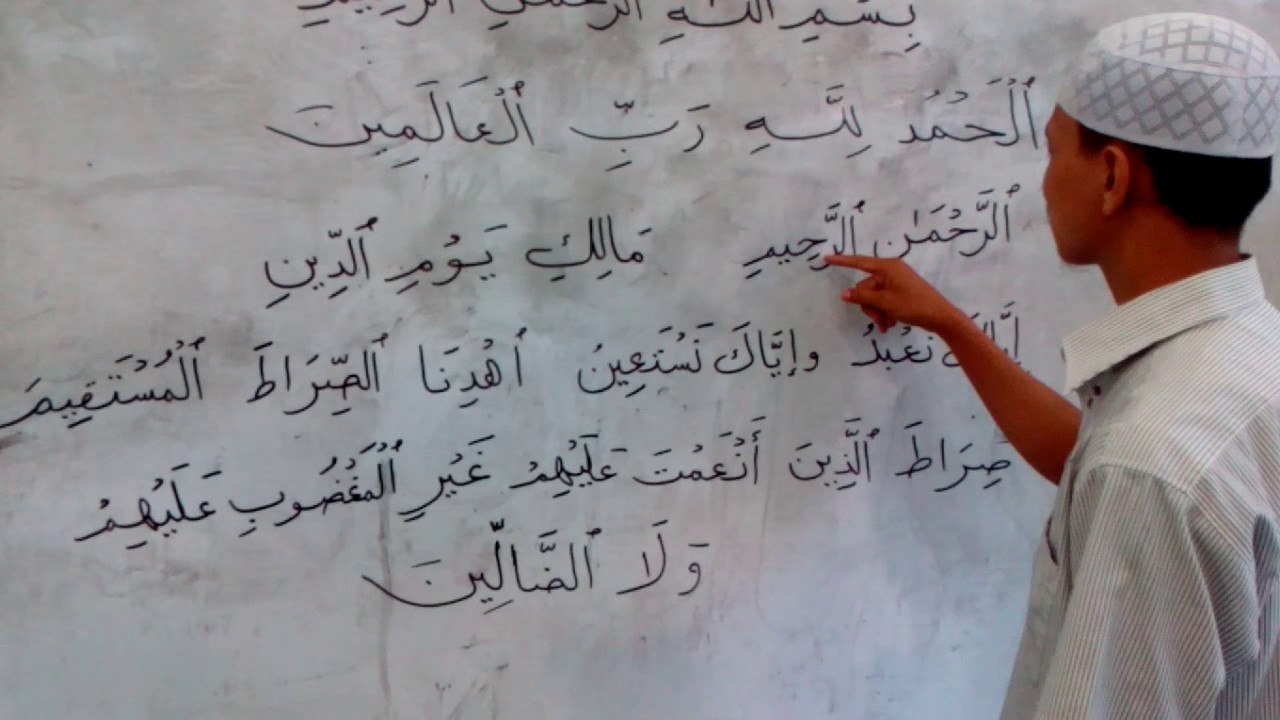 بِسْمِ ٱللَّهِ ٱلرَّحْمَٰنِ ٱلرَّحِيمِ
ٱلْحَمْدُ لِلَّهِ رَبِّ ٱلْعَالَمِينَ
ٱلرَّحْمَٰنِ ٱلرَّحِيمِ مَالِكِ يَوْمِ ٱلدِّينِ
إِيَّاكَ نَعْبُدُ وإِيَّاكَ نَسْتَعِينُ ٱهْدِنَا ٱلصِّرَاطَ ٱلْمُسْتَقِيمَ
صِرَاطَ ٱلَّذِينَ أَنْعَمْتَ عَلَيْهِمْ غَيْرِ ٱلْمَغْضُوبِ عَلَيْهِمْ
وَلَا ٱلضَّالِّينَ